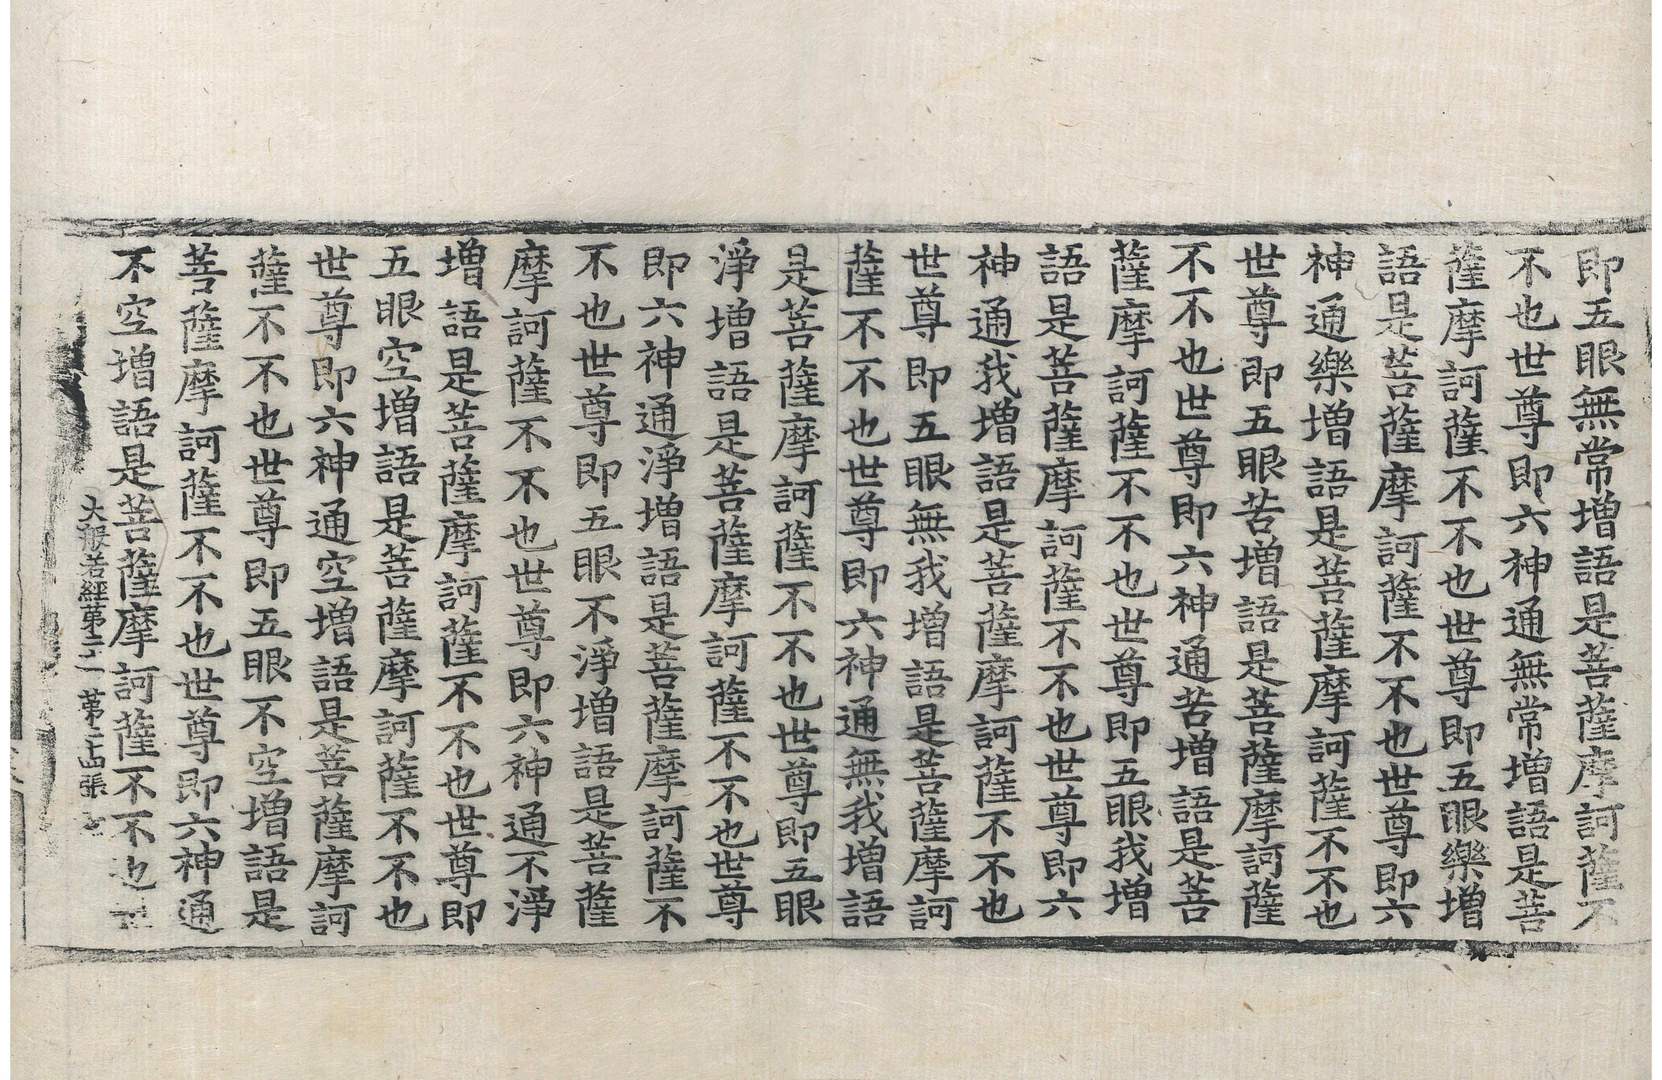 即五眼無常增語是菩薩摩訶薩不
不也世尊即六神通無常增語是菩
薩摩訶薩不不也世尊即五眼樂增
語是菩薩摩訶薩不不也世尊即六
神通樂增語是菩薩摩訶薩不不也
世尊即五眼苦增語是菩薩摩訶薩
不不也世尊即六神通苦增語是菩
薩摩訶薩不不也世尊即五眼我增
語是菩薩摩訶薩不不也世尊即六
神通我增語是菩薩摩訶薩不不也
世尊即五眼無我增語是菩薩摩訶
薩不不也世尊即六神通無我增語
是菩薩摩訶薩不不也世尊即五眼
淨增語是菩薩摩訶薩不不也世尊
即六神通淨增語是菩薩摩訶薩不
不也世尊即五眼不淨增語是菩薩
摩訶薩不不也世尊即六神通不淨
增語是菩薩摩訶薩不不也世尊即
五眼空增語是菩薩摩訶薩不不也
世尊即六神通空增語是菩薩摩訶
薩不不也世尊即五眼不空增語是
菩薩摩訶薩不不也世尊即六神通
不空增語是菩薩摩訶薩不不也
大般若經第三十二 第二十四張